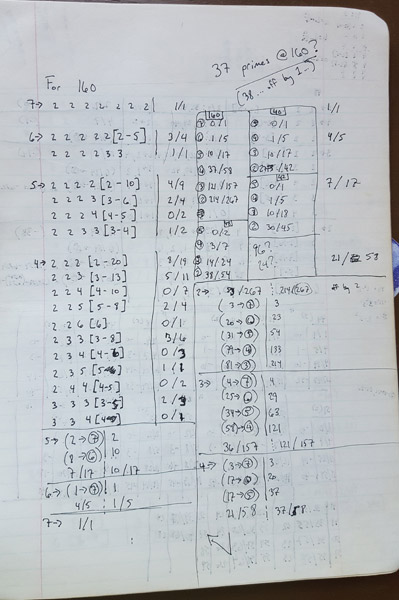 37 primes @ 160?
(38 ... off by 1 -)
For 160
7→ 2 2 2 2 2 2 2 | 1/1
6→ 2 2 2 2 2 [2-5] | 3/4
2 2 2 2 3 3 | 1/1
5→ 2 2 2 2 [2-10] | 4/9
2 2 2 3 [3-6] | 2/4
2 2 2 4 [4-5] | 0/2
2 2 3 3 [3-4] | 1/2
4→ 2 2 2 [2-20] | 8/19
2 2 3 [3-13] | 5/11
2 2 4 [4-10] | 0/7
2 2 5 [5-8] | 2/4
2 2 6 [6] | 0/1
2 3 3 [3-8] | 3/6
2 3 4 [4-6] | 0/3
2 3 5 [5] | 1/1
2 4 4 [4-5] | 0/2
3 3 3 [3-5] | 2/3
3 3 4 [4] | 0/1
5→ (2→⑦) | 2
(8→⑥) | 10
7/17 | 10/17
6→ (1→⑦) | 1
4/5 | 1/5
7→ 1/1
160
⑦ 0/1
⑥ 1/5
⑤ 10/17
④ 37/58
③ 121/157
② 214/267
0/2
3/7
14/24
38/54
80
0/1
1/5
10/17
/42
0/1
1/5
10/18
30/45
96?
24?
1/1
4/5
7/17
21/58
2→ 53/267 | 214/267 off by 2
(3→⑦) | 3
(20→⑥) | 23
(31→⑤) | 54
(79→④) | 133
(81→③) | 214
3→ (4→⑦) | 4
(25→⑥) | 29
(34→⑤) | 63
(58→④) | 121
36/157 | 121/157
4→ (3→⑦) | 3
(17→⑥) | 20
(17→⑤) | 37
21/58 | 37/58